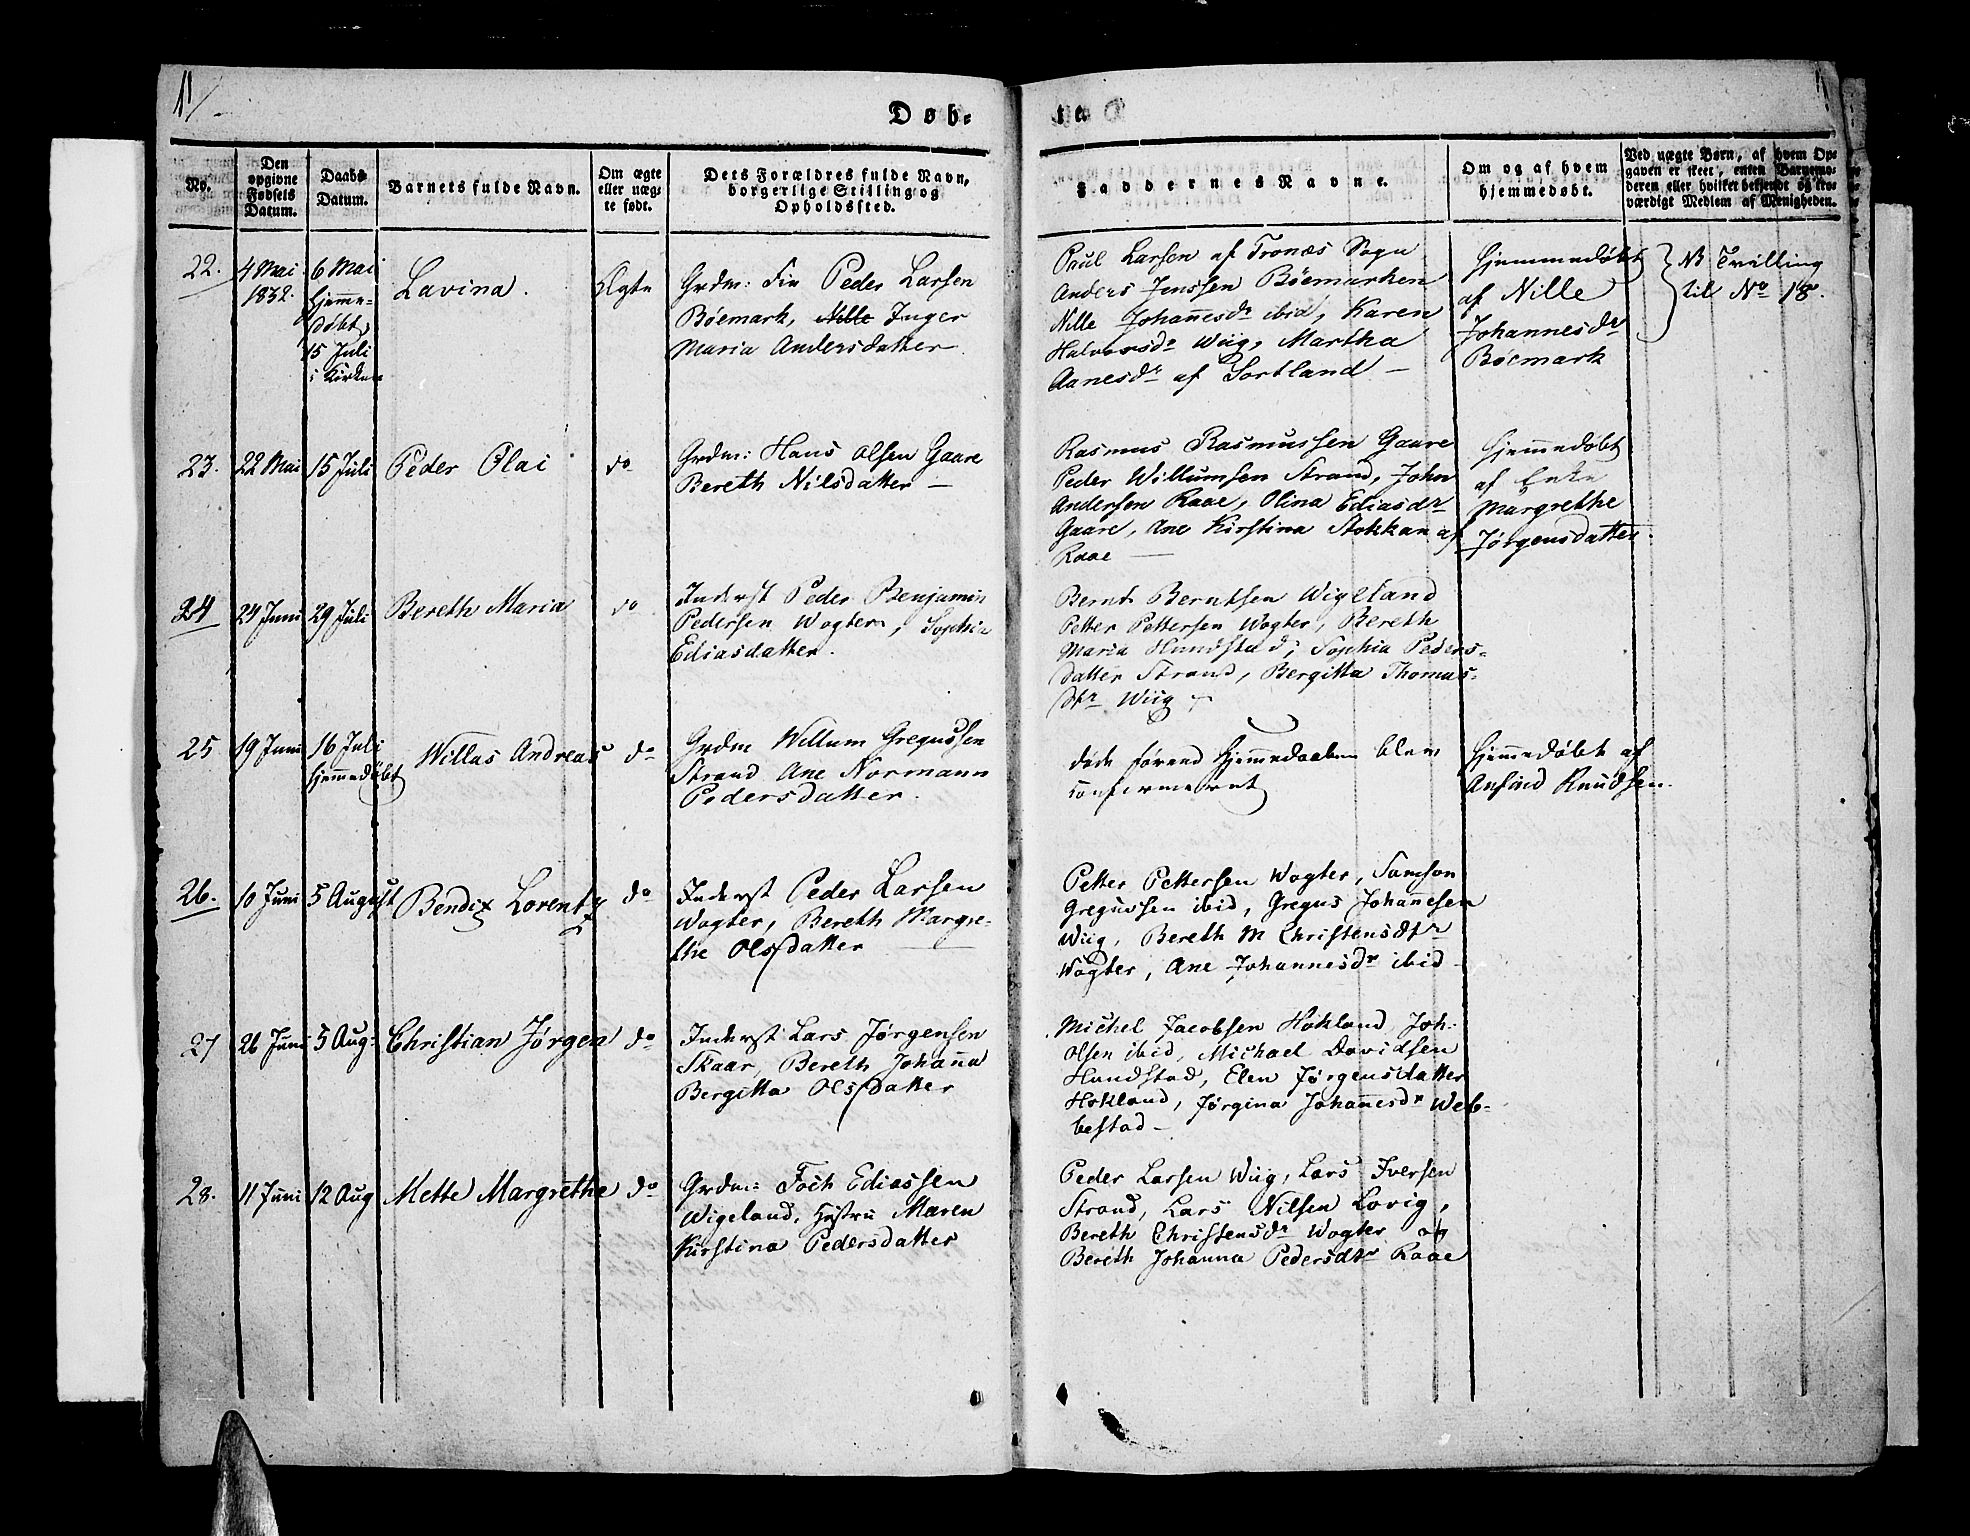 11/
Døb-
te
No.
Den
opgivne
Fødsels
Datum.
Daabs
Datum.
Barnets fulde Navn.
Om ægte
eller uæg-
te født.
Dets Forældres fulde Navn,
borgerlige Stilling og
Opholdssted.
Faddernes Navne.
Om og af hvem
hjemmedøbt.
Ved uægte Børn, af hvem Op-
gaven er skeet, enten Barnemo-
deren eller hvilket bekjendt og tro-
værdigt Medlem af Menigheden.
22.
4 Mai
1832.
6 Mai
hjemme-
døbt,
15 Juli
i Kirken
Lavina.
Ægte
Grdm: Fin Peder Larsen
Bøemark, Nille Inger
Maria Andersdatter.
Paul Larsen af Tronæs Sogn
Anders Jenssen Bøemarken
Nille Johannesdr ibid, Karen
Halvorsdr Wiig, Martha
Aanesdr af Sortland —
Hjemmedøbt
af Nille
Johannesdr
Bøemark
NB Tvilling
til No 18.
23.
22 Mai
15 Juli
Peder Olai
do
Grdm: Hans Olsen Gaare
Bereth Nilsdatter —
Rasmus Rasmussen Gaare
Peder Willumsen Strand, John
Andersen Raae, Olina Ediasdr
Gaare, Ane Kirstina Stokkan af
Raae —
Hjemmedøbt
af Enke
Margrethe
Jørgensdatter.
24
24 Juni
29 Juli
Bereth Maria
do
Inderst Peder Benjamin
Pedersen Wogter, Sophia
Ediasdatter.
Bernt Berntsen Wigeland
Petter Pettersen Wogter, Bereth
Maria Hundstad, Sophia Peders-
datter Strand, Bergitta Thomas-
dtr Wiig
25
19 Juni
16 Juli
hjemmedøbt
Willas Andreas
do
Grdm Willum Gregussen
Strand Ane Normann
Pedersdatter.
døde førend Hjemmedaaben blev
confirmeret
Hjemmedøbt af
Anfind Knudsen.
26.
10 Juni
5 August
Bendix Lorentz
do
Inderst Peder Larsen
Wogter, Bereth Margre-
the Olsdatter
Petter Pettersen Wogter, Samson
Gregussen ibid, Gregus Johannesen
Wiig, Bereth M Christensdtr
Wogter, Ane Johannesdr ibid —
27
26 Juni
5 Aug:
Christian Jørgen
do
Inderst Lars Jørgensen
Skaar, Bereth Johanna
Bergitta Olsdatter
Michel Jacobsen Hokland, Joh:
Olsen ibid, Michael Davidsen
Hundstad, Elen Jørgensdatter
Hokland, Jørgina Johannesdr Web-
bestad —
28.
11 Juni
12 Aug
Mette Margrethe
do
Grdm: Foch Ediassen
Wigeland, Hustru Maren
Kirstina Pedersdatter
Peder Larsen Wiig, Lars Iversen
Strand, Lars Nilsen Lovig,
Bereth Christensdr Wogter og
Bereth Johanna Pedersdtr Raae